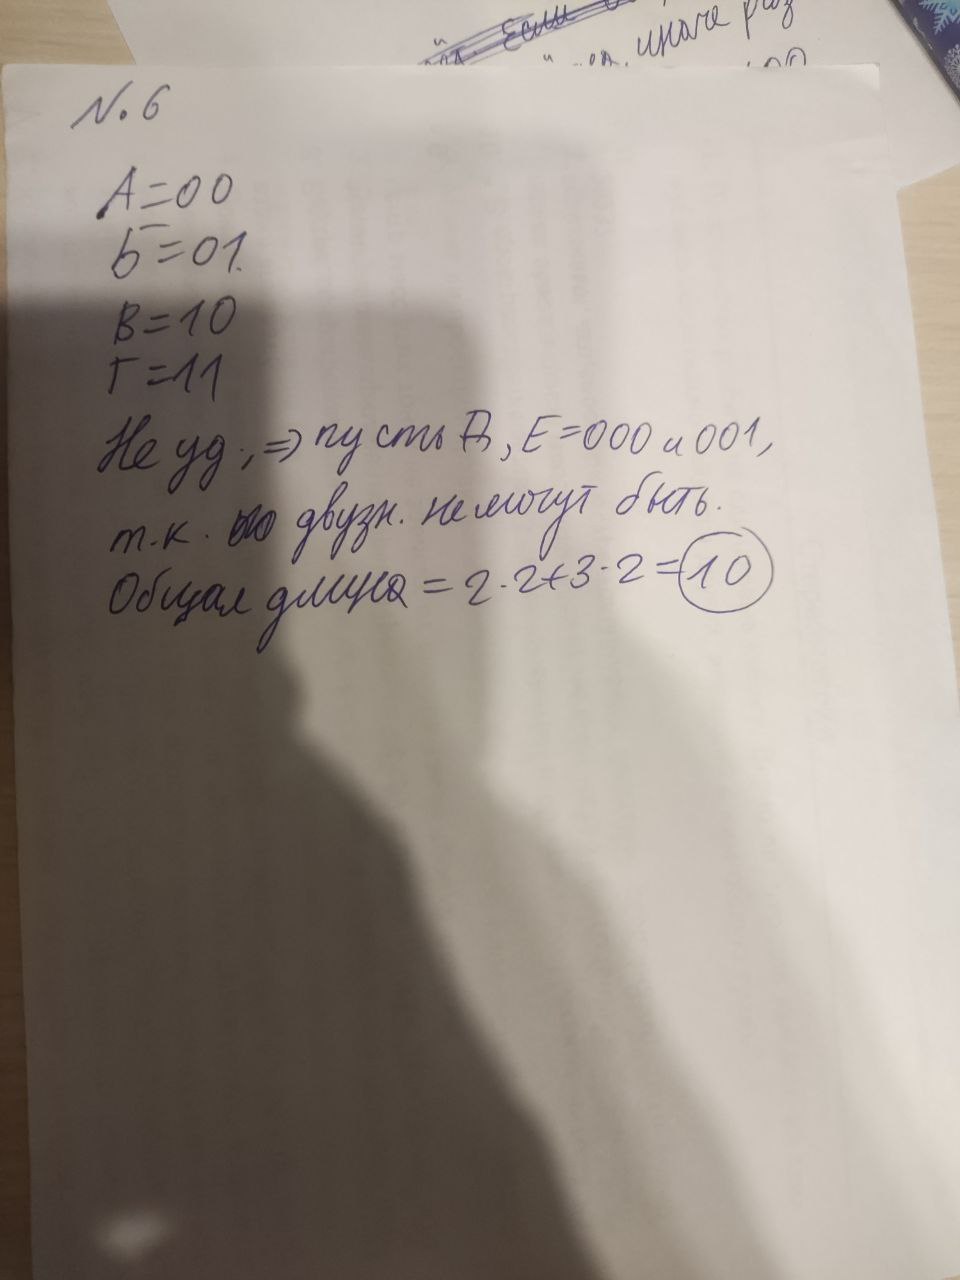 Если
иначе раз
N.6
А=00
Б=01.
В=10
Г=11
Не уд., => пусть Д, Е=000 и 001,
т.к. двузн. не могут быть.
Общая длина = 2·2+3·2=10